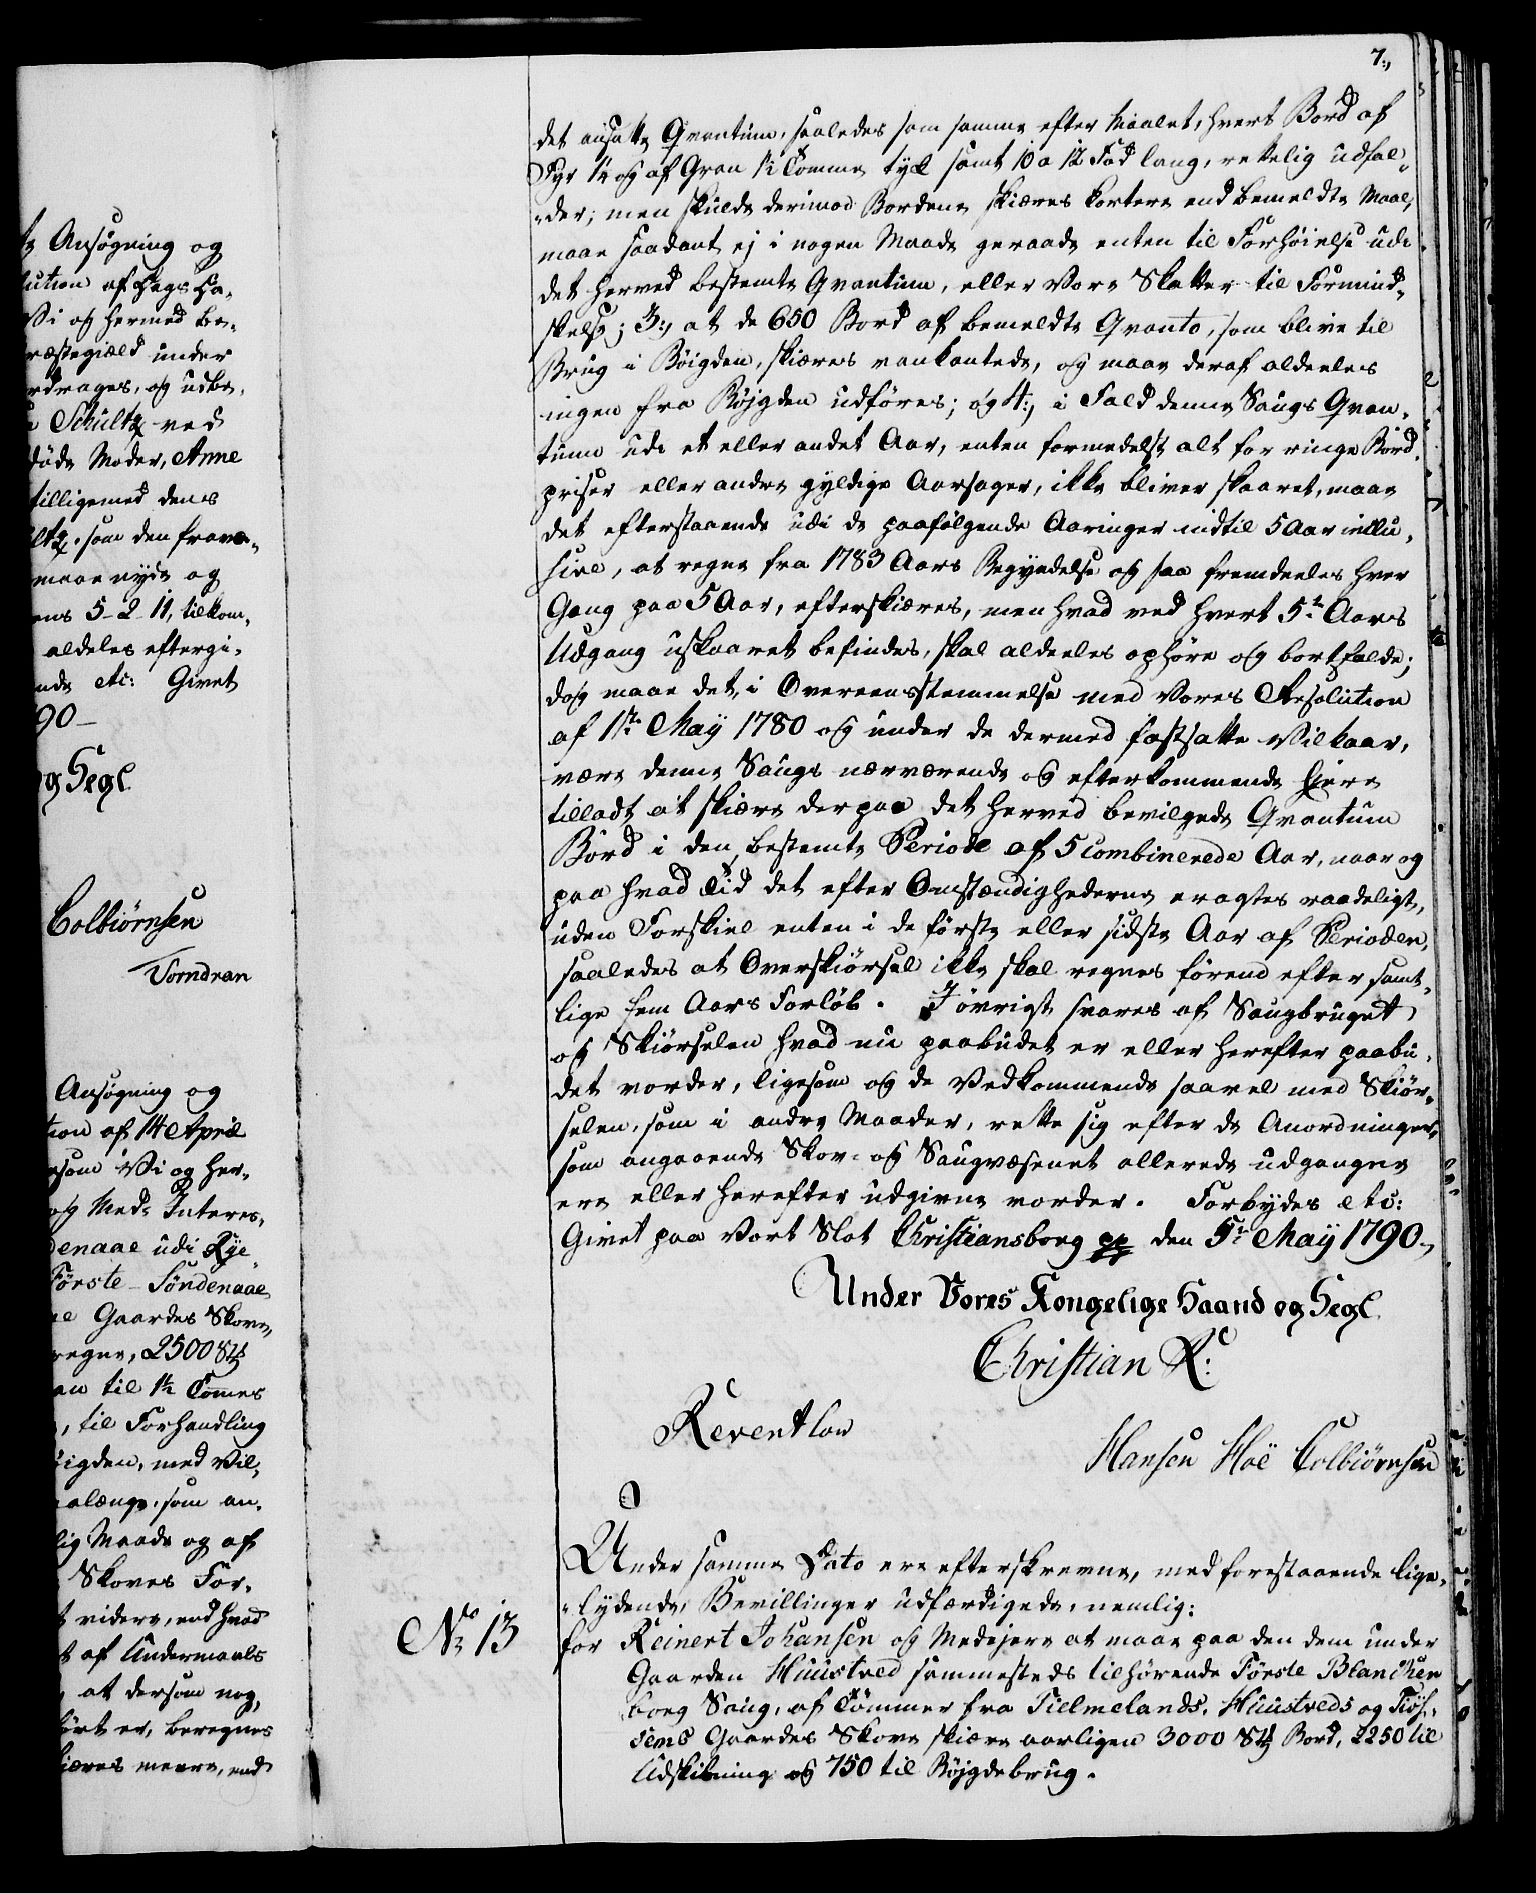 7.,
det ansatte Qvantum, saaledes som samme efter Maalet, hvert Bord af
Fyr 1¼ og af Gran 1½ Tomme tyk samt 10 a 12 Fod lang, rettelig udfal-
der; men skulde derimod Bordene skiæres kortere end bemeldte Maal,
maae saadant ej i nogen Maade geraade enten til Forhøielse udi
det herved bestemte Qvantum, eller Vore Skatter til Formind-
skelse; 3., at de 650 Bord af bemeldte Qvanto, som blive til
Brug i Bøigden, skiæres vankantede, og maae deraf aldeeles
ingen fra Bøjgden udføres; og 4., i Fald denne Saugs Qvan-
tum udi et eller andet Aar, enten formedelst alt for ringe Bord-
priser eller andre gyldige Aarsager, ikke bliver skaaret, maae
det efterstaaende udi de paafølgende Aaringer indtil 5 Aar inclu-
sive, at regne fra 1783 Aars Begyndelse og saa fremdeeles hver
Gang paa 5 Aar, efterskiæres, men hvad ved hvert 5te Aars
Udgang uskaaret befindes, skal aldeeles ophøre og bortfalde;
dog maae det, i Overeensstemmelse med Vores Resolution
af 1ste Maÿ 1780 og under de dermed fastsatte Vilkaar,
være denne Saugs nærværende og efterkommende Ejere
tilladt at skiære derpaa det herved bevilgede Qvantum
Bord i den bestemte Periode af 5 combinerede Aar, naar og
paa hvad Tid det efter Omstændighederne eragtes raadeligt,
uden Forskiel enten i de første eller sidste Aar af Perioden,
saaledes at Overskiørsel ikke skal regnes førend efter samt-
lige fem Aars Forløb. I øvrigt svares af Saugbruget
og Skiørselen hvad nu paabudet er eller herefter paabu-
det vorder, ligesom og de Vedkommende saavel med Skiør-
selen, som i andre Maader, rette sig efter de Anordninger,
som angaaende Skov- og Saugvæsenet allerede udgangne
ere eller herefter udgivne vorder. Forbydes etc:
Givet paa Vort Slot Christiansborg pp den 5te Maÿ 1790.,
Under Vores Kongelige Haand og Segl.
Christian R:
Reventlow
Hansen Høe Colbiørnsen
Under samme Dato ere efterskrevne, med forestaaende lige-
lydende, Bevillinger udfærdigede, nemlig:
No 13 for Reinert Johansen og Medejere at maae paa den dem under
Gaarden Huustved sammesteds tilhørende Første Blanchen
borg Saug, af Tømmer fra Tielmelands, Huustveds og Tiøs-
tems Gaardes Skove skiære aarligen 3000 Stk Bord, 2250 til
Udskibning og 750 til Bøjgdebrug.
e Ansøgning og
lution af Dags Da-
Vi og hermed be-
ræstegiæld under
rdrages, og udbe-
Schultz ved
døde Moder, Anne
tilligemed dens
ltz, som den fravæ-
maae nyde og
ens 5-2-11, tilkom-
aldeles eftergi-
nde etc: Givet
90
og Segl
Colbiørnsen
Vomdran
Ansøgning og
tion af 14 April
som Vi og her-
og Med-Interes-
denaae udi Rye
Første Søndenaae
e Gaardes Skove
regne, 2500 Stk
an til 1½ Tomes
, til Forhandling
øigden, med Vil-
alænge, som an-
lig Maade og af
Skoves For-
t videre, end hvad
t af Undermaals
at dersom nog-
ørt er, beregnes
iæres meere, end